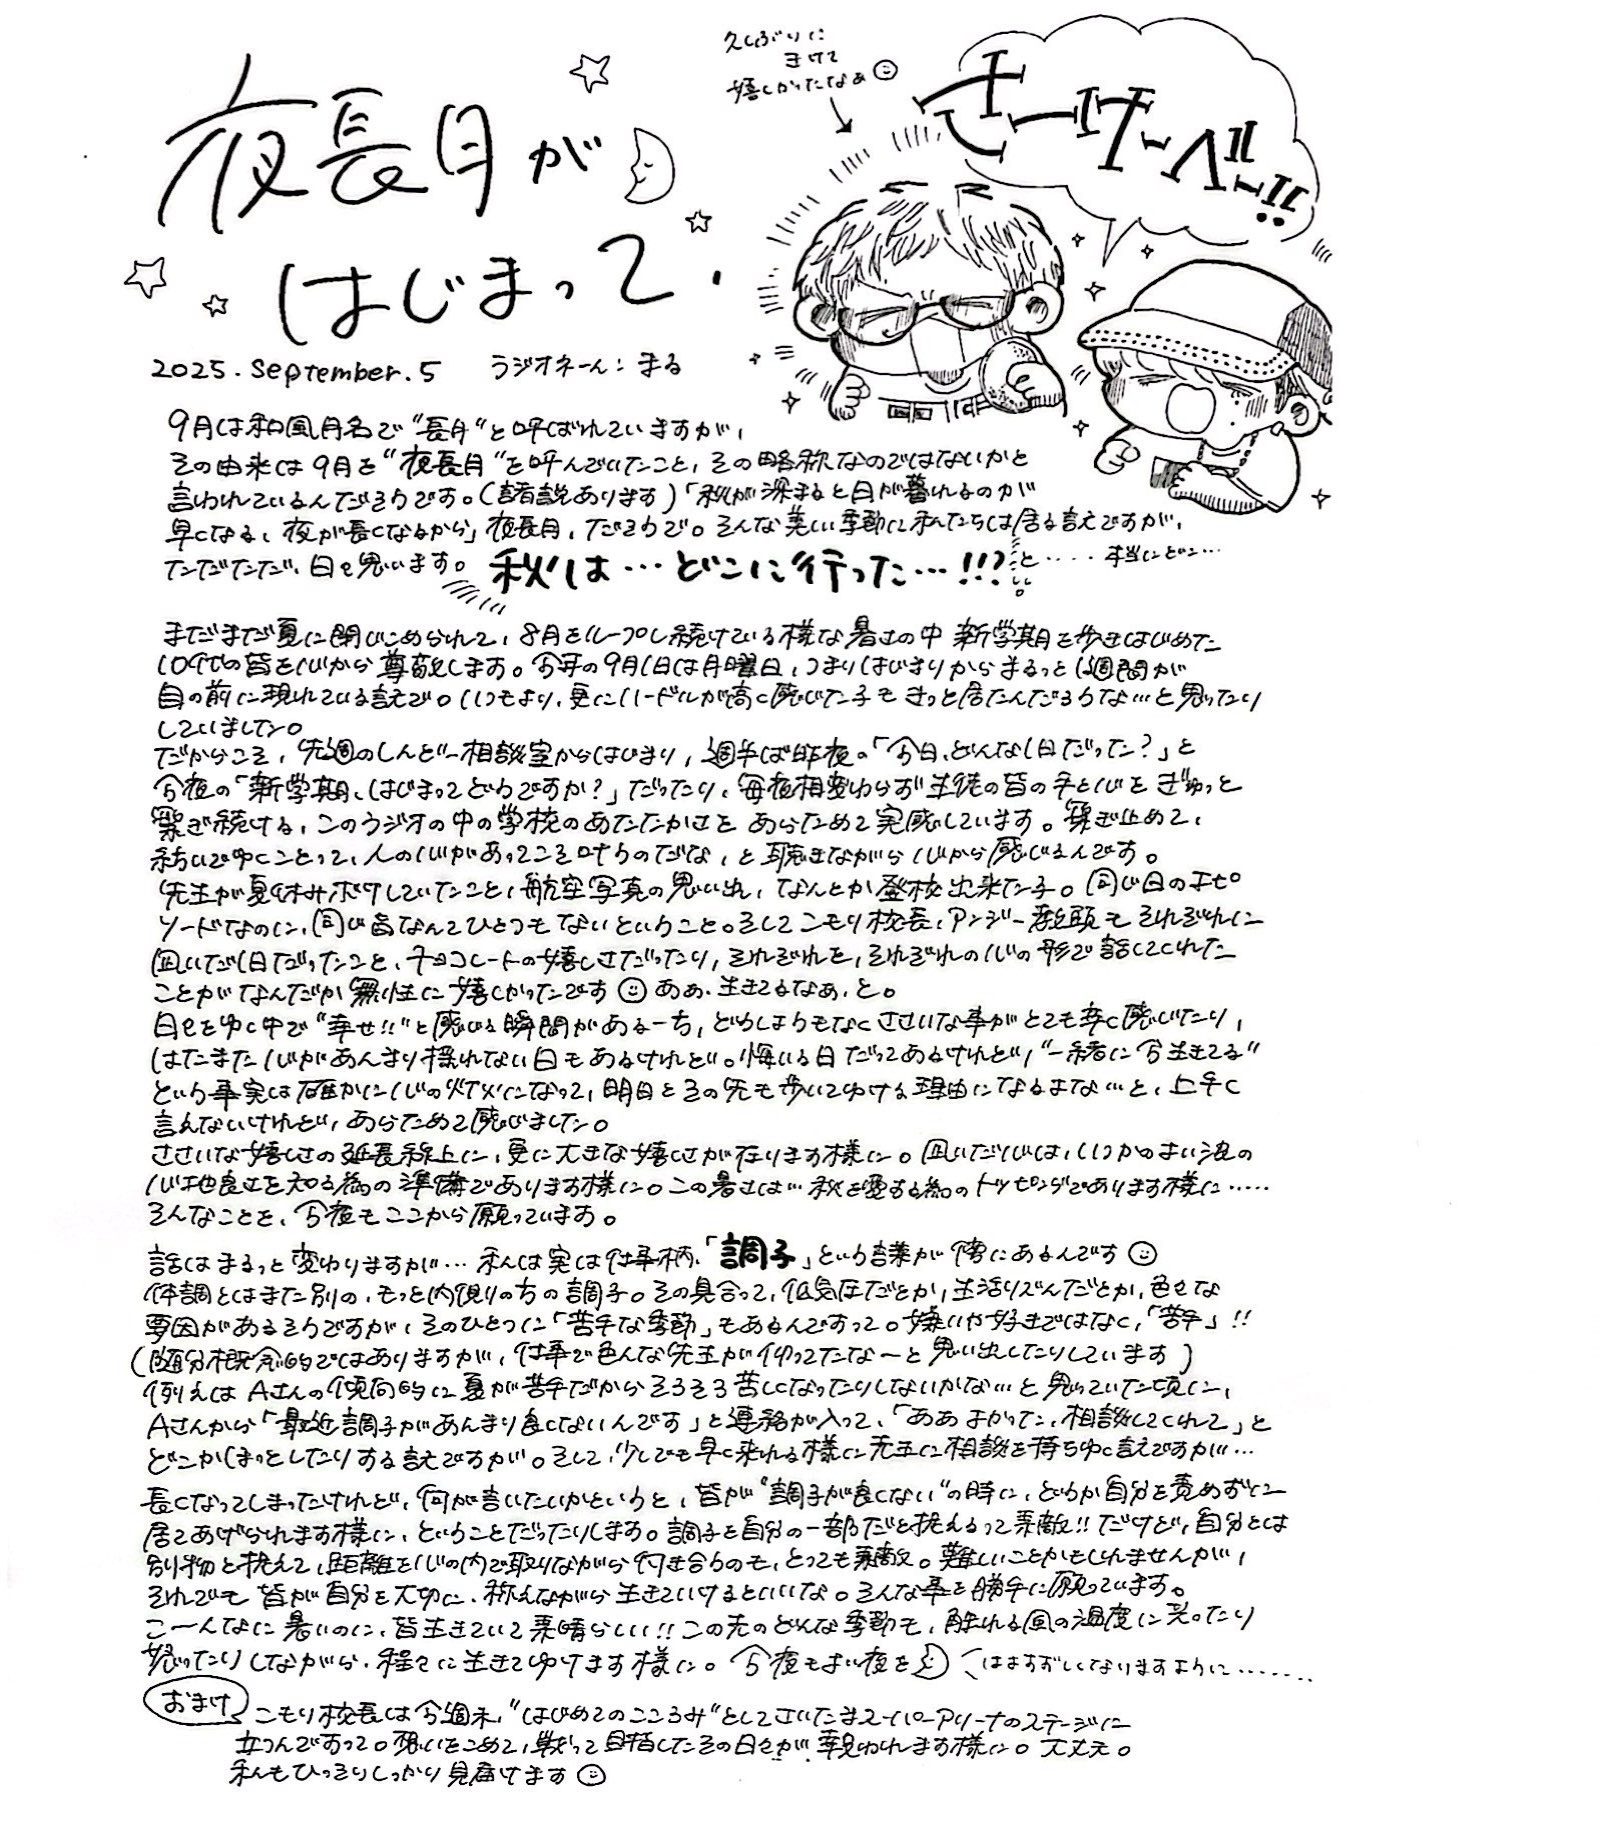 久しぶりに
きけて
嬉しかったなぁ
さーけーべー!!
夜長月が
はじまって、
2025.September.5 ラジオネーム:まる
9月は和風月名で"長月"と呼ばれていますが、
その由来は9月を"夜長月"と呼んでいたこと、その略称なのではないかと
言われているんだそうです。(諸説あります)「秋が深まると日が暮れるのが
早くなる、夜が長くなるから」夜長月、だそうで。そんな美しい季節に私たちは居る訳ですが、
ただただ、日々思います。秋は…どこに行った…!!!?と・・・・・本当にどこ…
まだまだ夏に閉じこめられて、8月をループし続けている様な暑さの中 新学期を歩きはじめた
10代の皆を心から尊敬します。今年の9月1日は月曜日、つまりはじまりからまるっと1週間が
目の前に現れている訳で。いつもより、更にハードルが高く感じた子もきっと居たんだろうな…と思ったり
していました。
だからこそ、先週のしんどー相談室からはじまり、週半ば昨夜の「今日、どんな1日だった?」と
今夜の「新学期、はじまってどうですか?」だったり、毎夜相変わらず生徒の皆の手と心をぎゅっと
繋ぎ続ける、このラジオの中の学校のあたたかさをあらためて実感しています。繋ぎ止めて、
紡いでゆくことって、人の心があってこそ叶うのだな、と聴きながら心から感じるんです。
先生が夏休みボケしていたこと、航空写真の思い出、なんとか登校出来た子。同じ日のエピ
ソードなのに、同じ音なんてひとつもないということ。そしてこもり校長、アンジー教頭もそれぞれに
凪いだ1日だったこと、チョコレートの嬉しさだったり、それぞれを、それぞれの心の形で話してくれた
ことがなんだか無性に嬉しかったです あぁ、生きてるなぁ、と。
日々をゆく中で"幸せ!!"と感じる瞬間がある一方、どうしようもなくささいな事がとても辛く感じたり、
はたまた心があんまり揺れない日もあるけれど。悔いる日だってあるけれど、"一緒に今生きてる"
という事実は確かに心の灯火になって、明日とその先も歩いてゆける理由になるよな…と、上手く
言えないけれど、あらためて感じました。
ささいな嬉しさの延長線上に、更に大きな嬉しさが在ります様に。凪いだ心は、いつかのよい波の
心地良さを知る為の準備であります様に。この暑さは…秋を愛する為のトッピングであります様に……
そんなことを、今夜もここから願っています。
話はまるっと変わりますが…私は実は仕事柄、「調子」という言葉が傍にあるんです
体調とはまた別の、もっと内側の方の調子。その具合って、低気圧だとか、生活リズムだとか、色々な
要因があるそうですが、そのひとつに「苦手な季節」もあるんですって。嫌いや好きではなく、「苦手」!!
(随分概念的ではありますが、仕事で色んな先生が仰ってたな〜と思い出したりしています)
例えばAさんの傾向的に夏が苦手だからそろそろ苦しくなったりしないかな…と思っていた頃に、
Aさんから「最近調子があんまり良くないんです」と連絡が入って、「ああよかった、相談してくれて」と
どこかほっとしたりする訳ですが。そして、少しでも早く来れる様に先生に相談を持ちゆく訳ですが…
長くなってしまったけれど、何が言いたいかというと、皆が"調子が良くない"の時に、どうか自分を責めずに
居てあげられます様に、ということだったりします。調子を自分の一部だと捉えるって素敵!!だけど、自分とは
別物と捉えて、距離を心の内で取りながら付き合うのも、とっても素敵。難しいことかもしれませんが、
それでも皆が自分を大切に、称えながら生きていけるといいな。そんな事を勝手に願っています。
こーんなに暑いのに、皆生きていて素晴らしい!!この先のどんな季節も、触れる風の温度に笑ったり
怒ったりしながら、程々に生きてゆけます様に。今夜もよい夜を はますずしくなりますように……
おまけ こもり校長は今週末、"はじめてのこころみ"としてさいたまスーパーアリーナのステージに
立つんですって。想いをこめて、戦って目指したその日々が報われます様に。大丈夫。
私もひっそりしっかり見届けます